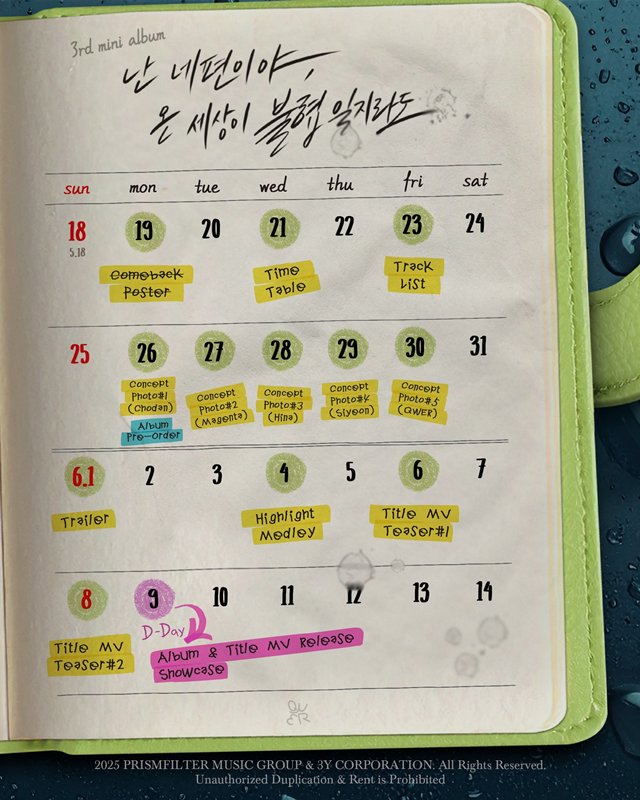 3rd mini album
난 네편이야,
온 세상이 불협일지라도
sun mon tue wed thu fri sat
18 19 20 21 22 23 24
5.18
Comeback Poster
Time Table
Track List
25 26 27 28 29 30 31
Concept Photo#1 (Chodan)
Concept Photo#2 (Magenta)
Concept Photo#3 (Hina)
Concept Photo#4 (Siyeon)
Concept Photo#.5 (QWER)
Album Pre-order
6.1 2 3 4 5 6 7
Trailer
Highlight Medley
Title MV Teaser#1
8 9 10 11 12 13 14
D-Day
Title MV Teaser#2
Album & Title MV Release
Showcase
QW
ER
2025 PRISMFILTER MUSIC GROUP & 3Y CORPORATION. All Rights Reserved.
Unauthorized Duplication & Rent is Prohibited